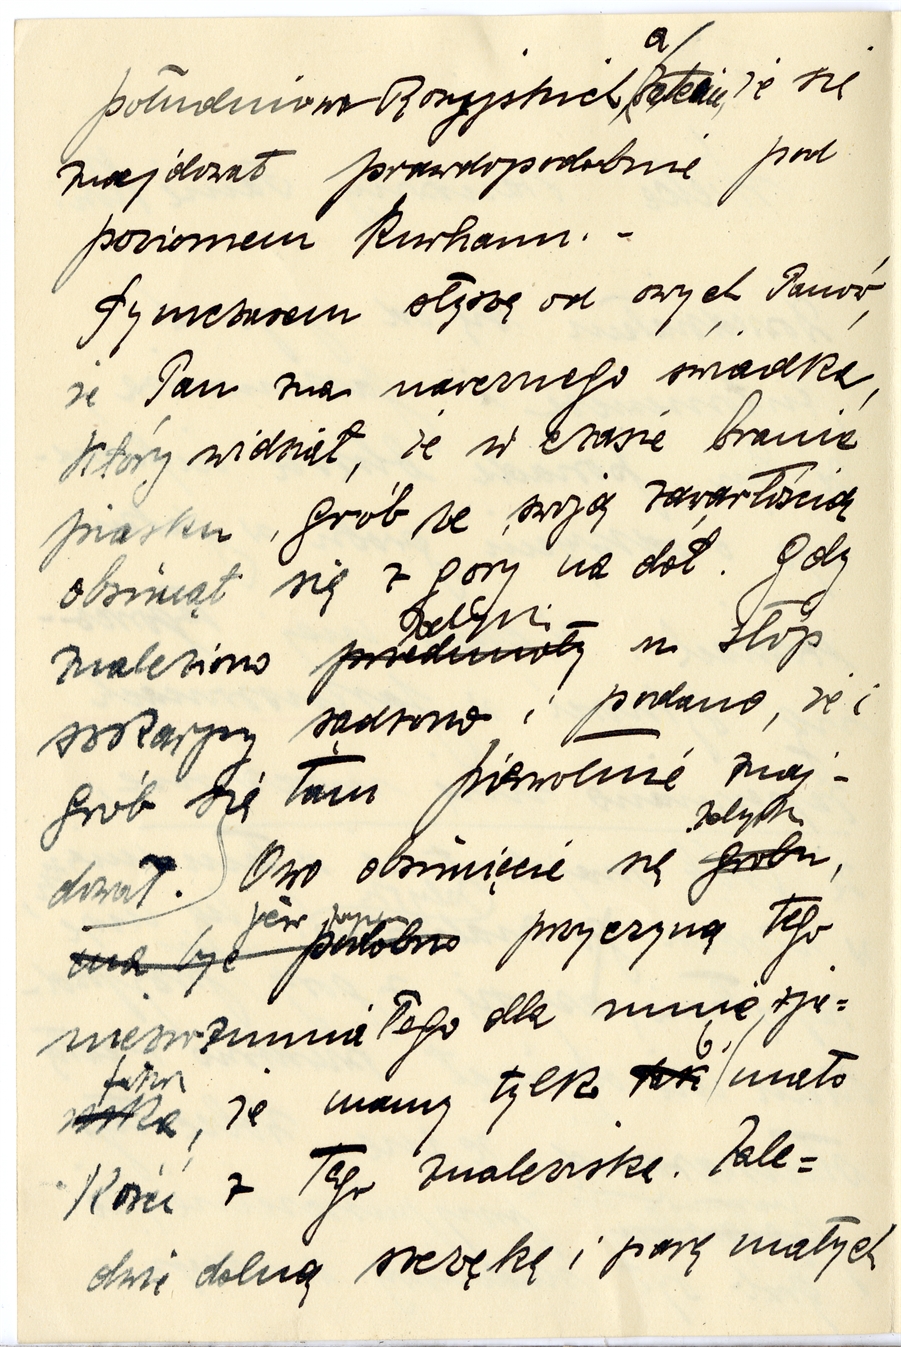 a/
południowo Rosyjskich, że się
znajdował prawdopodobnie pod
poziomem Kurhanu. -
Tymczasem słyszę od owych Panów,
że Pan zna naocznego świadka,
który widział, że w czasie brania
piasku, grób ze swoją zawartością
obsunął się z góry na dół. Gdy
znaleziono przedmioty u stóp
szkarpy sądzono i podano, że i
grób się tam pierwotnie znaj-
dował. Owo obsunięcie się grobu,
ma być podobno przyczyną tego
niezrozumiałego dla mnie zja=
wiska, że mamy tylko tak mało
Kości z tego znaleziska. Zale=
dwie dolną szczękę i parę małych